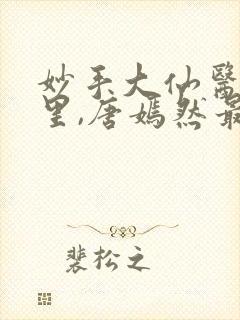 妙手大仙醫
里,唐嫣然最
裴松之